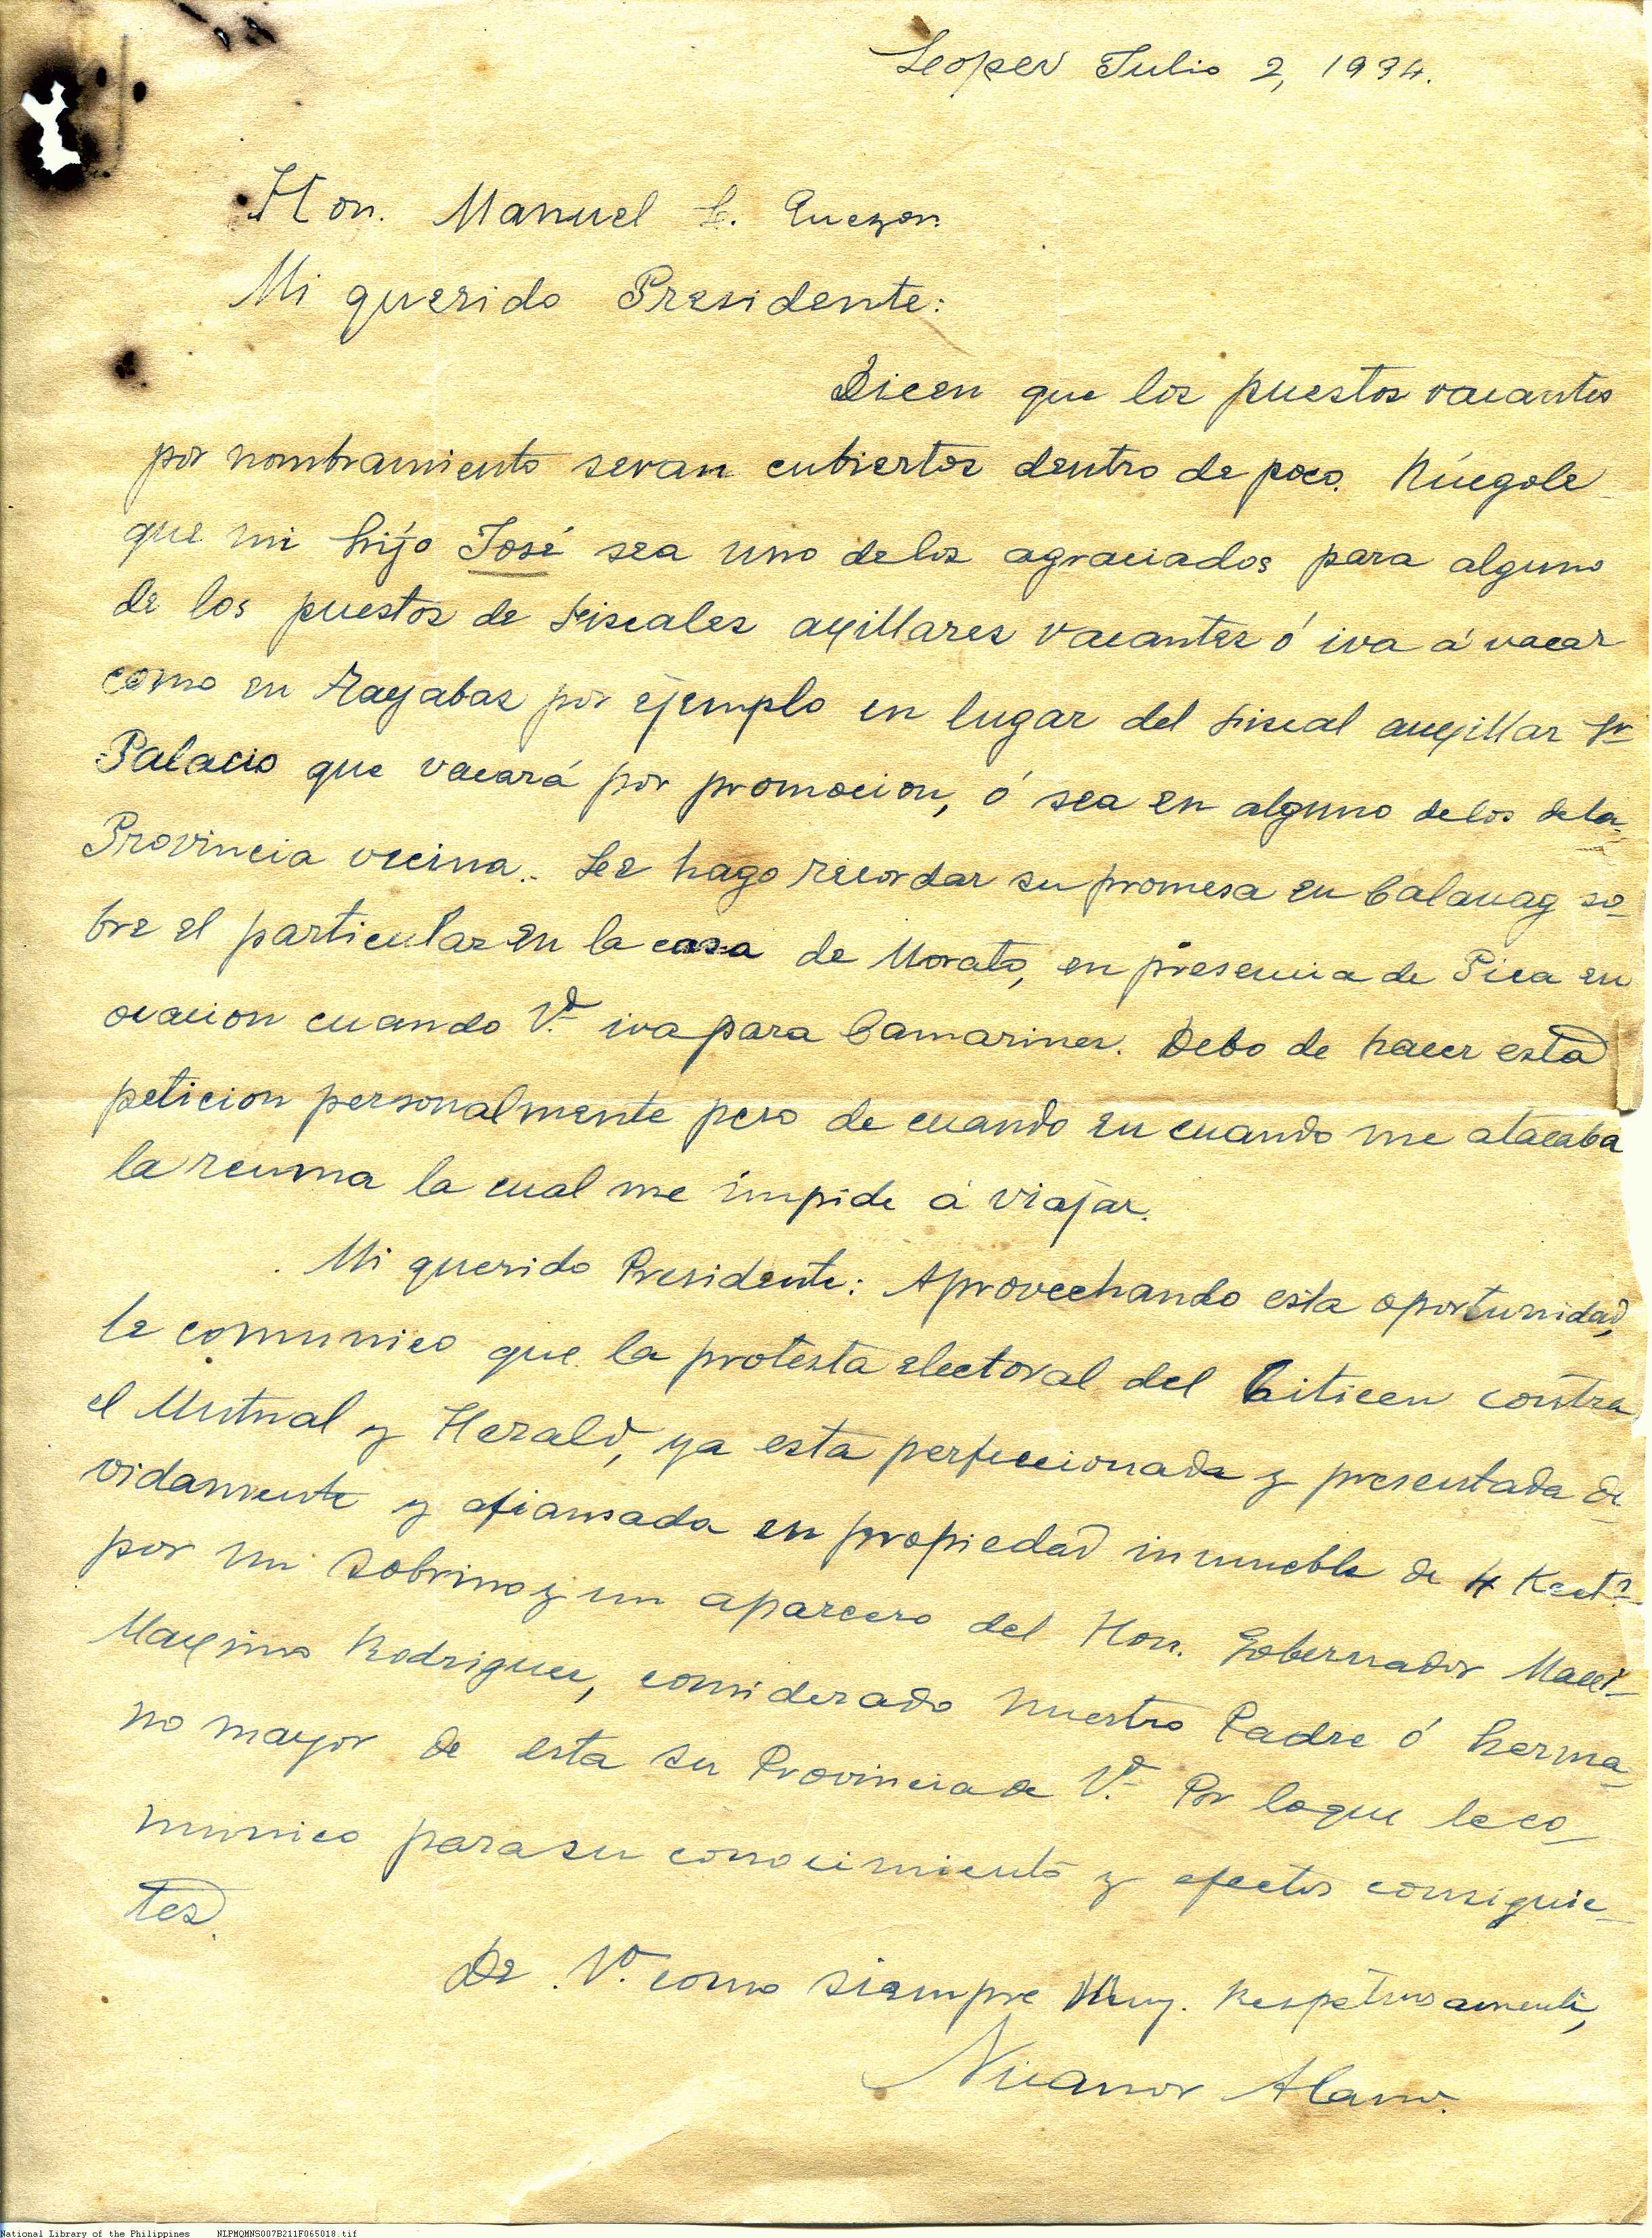 Lopez Julio 2, 1934.
Hon. Manuel L. Quezon
Mi querido Presidente:
Dicen que los puestos vacantes
por nombramiento seran cubiertos dentro de poco. Rúegole
que mi hijo José sea uno delos agraciados para alguno
de los puestos de fiscales auxillares vacantes ó iva á vacar
como en Tayabas por ejemplo en lugar del fiscal auxillar Sr
Palacio que vacará por promocion, ó sea en alguno delos dela
Provincia vecina. Le hago recordar su promesa en Calauag so-
bre el particular en la casa de Morato, en presencia de Pica en
ocacion cuando Vd. iva para Camarines. Debo de hacer esta
peticion personalmente pero de cuando en cuando me atacaba
la reuma la cual me impide á viajar.
Mi querido Presidente: Aprovechando esta oportunidad,
le comunico que la protesta electoral del Citicen contra
el Mutual y Herald, ya esta perfeccionada y presentada de-
vidamente y afiansada en propiedad inmueble de 4 Hect.s
por mi sobrino y un aparcero del Hon. Gobernador
Maximo Rodriguez, considerado nuestro Padre ó herma-
no mayor de esta su Provincia de Vd. Por loque le co-
munico parasu conocimiento y efectos consiguie-
tes.
De Vd. como siempre Muy. Respetuosamente,
Nicanor Alano.
National Library of the Philippines NLPMQMNS007B211F065018.tif